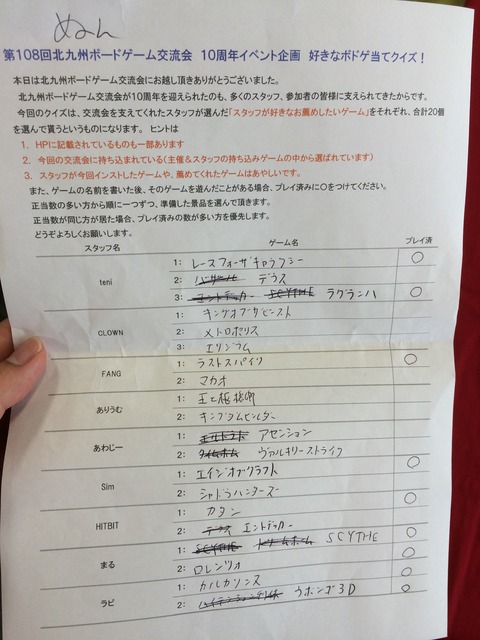 ぬーん
第108回北九州ボードゲーム交流会　10周年イベント企画　好きなボドゲ当てクイズ！
本日は北九州ボードゲーム交流会にお越し頂きありがとうございました。
北九州ボードゲーム交流会が10周年を迎えられたのも、多くのスタッフ、参加者の皆様に支えられてきたからです。
今回のクイズは、交流会を支えてくれたスタッフが選んだ「スタッフが好きなお薦めしたいゲーム」をそれぞれ、合計20個
を選んで貰うというものになります。 ヒントは
1. HPに記載されているものも一部あります
2. 今回の交流会に持ち込まれている（主催＆スタッフの持ち込みゲームの中から選ばれています）
3. スタッフが今回インストしたゲームや、薦めてくれたゲームはあやしいです。
また、ゲームの名前を書いた後、そのゲームを遊んだことがある場合、プレイ済みに○をつけてください。
正当数の多い方から順に一つずつ、準備した景品を選んで頂きます。
正当数が同じ方が居た場合、プレイ済みの数が多い方を優先します。
どうぞよろしくお願いします。
スタッフ名 ゲーム名 プレイ済
teni 1: レースフォーザギャラクシー ○
2: デウス
3: エントデッカー SCYTHE ラグランハ ○
CLOWN 1: キングオブサビニスト
2: メトロポリス
3: エリジウム
FANG 1: ラストスパイク ○
2: マカオ
ありうむ 1: 王と枢機卿
2: キングダムビルダー
あわじー 1: アセンション
2: タイムボム ヴァルキリーストライク
Sim 1: エイジオブクラフト ○
2: シャドウハンターズ
HITBIT 1: カタン ○
2: デウス エントデッカー
まる 1: SCYTHE ドリームホーム SCYTHE ○
2: ロレンツォ ○
ラビ 1: カルカソンヌ ○
2: ウボンゴ3D ○